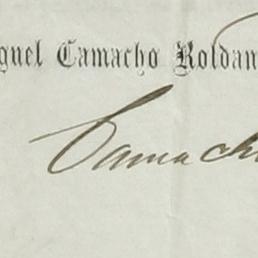 guel Camacho Roldan
Camach